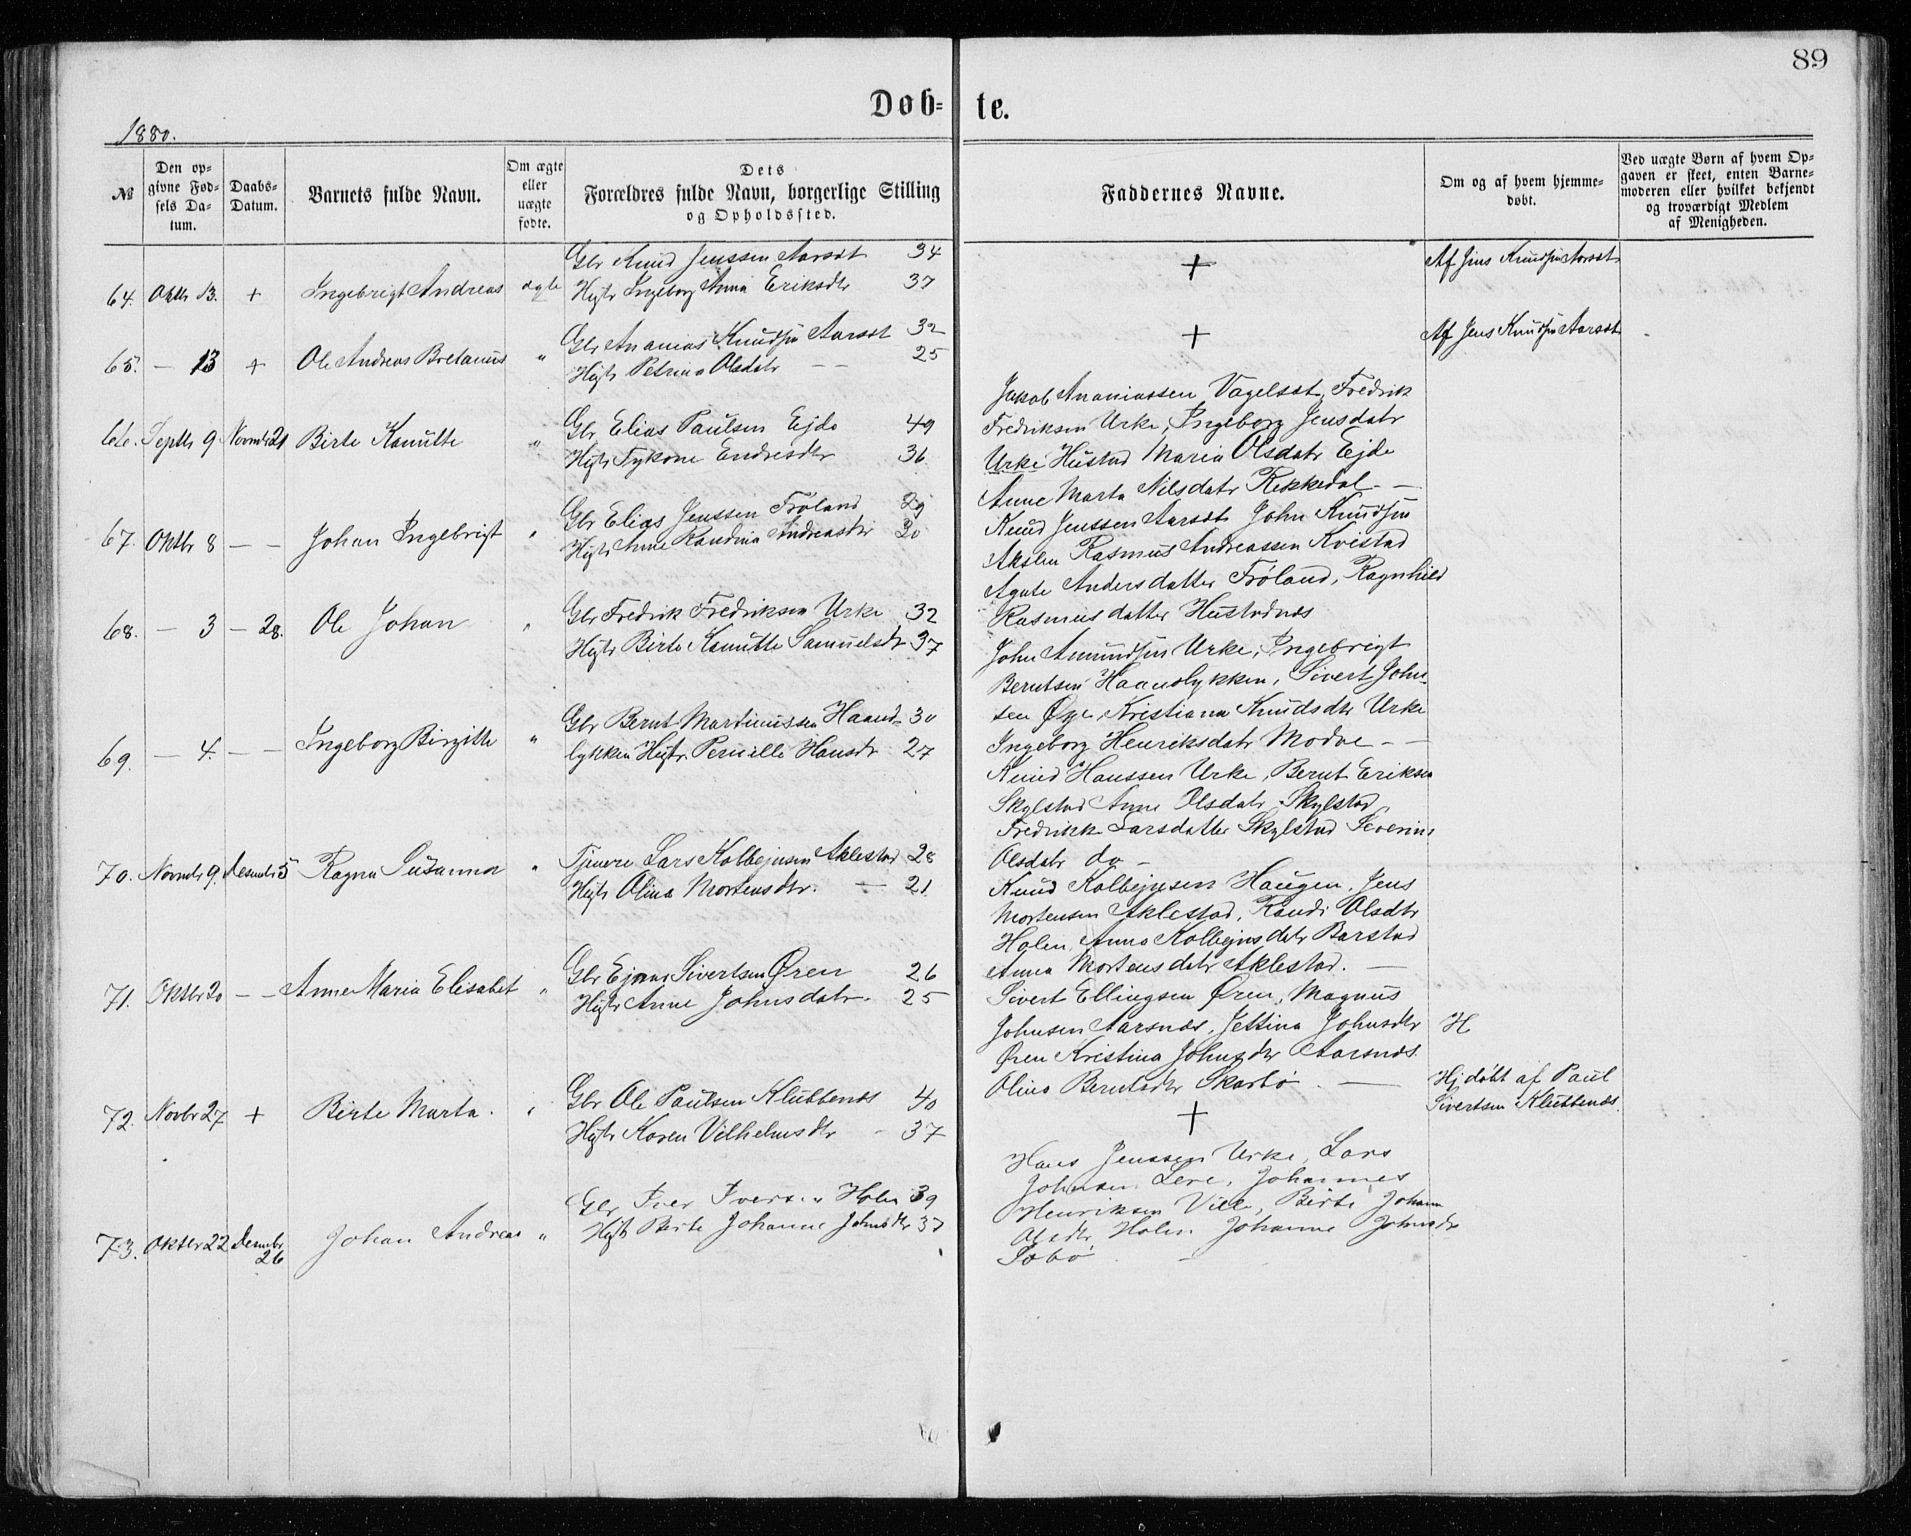 89
Døb- te.
1880.
№
Den op-
givne Fød-
sels Da-
tum.
Daabs-
Datum.
Barnets fulde Navn.
Om ægte
eller
uægte
fødte.
Dets
Forældres fulde Navn, borgerlige Stilling
og Opholdssted.
Faddernes Navne.
Om og af hvem hjemme-
døbt.
Ved uægte Børn af hvem Op-
gaven er skeet, enten Barne-
moderen eller hvilket bekjendt
og troværdigt Medlem
af Menigheden.
64. Oktbr 13. + Ingebrigt Andreas ægte
Gbr Knud Jenssen Aarsæt 34
Hustr Ingeborg Anna Eriksdtr 37
+
Af Jens Knudsen Aarsæt
65. — 13 + Ole Andreas Bretanus "
Gbr Ananias Knudsen Aarsæt 32
Hustr Petrina Olsdatr — — 25
+
Af Jens Knudsen Aarsæt
66. Septbr 9 Novmbr 21 Birte Kanutte "
Gbr Elias Paulsen Ejde 49
Hustr Sykone Endresdtr 36
Jakob Ananiassen Vagelsæt, Fredrik
Fredriksen Urke, Ingeborg Jensdatr
Urke Hustad Maria Olsdatr Ejde
Anne Marta Nilsdatr Rekkedal —
67. Oktbr 8 — — Johan Ingebrigt "
Gbr Elias Jenssen Frøland 29
Hustr Anne Randina Andreasdtr 30
Knud Jenssen Aarsæt John Knudsen
Akslen Rasmus Andreassen Kvistad
Agate Andersdatter Frøland, Ragnhild
Rasmusdatter Hustadnæs
68. — 3 — 28. Ole Johan "
Gbr Fredrik Fredriksen Urke 32
Hustr Birte Kanutte Samuelsdtr 37
John Amundsen Urke, Ingebrigt
Berntsen Haanslykken, Sivert John-
sen Øye, Kristiana Knudsdtr Urke
Ingeborg Henriksdatr Modve — —
69. — 4. — — Ingeborg Birgitte "
Gbr Bernt Martinussen Haand- 30
lykken Hustr. Pernille Hansdtr 27
Knud Hanssen Urke, Bernt Eriksen
Skylstad Anne Olsdatr Skylstad,
Fredrikke Larsdatter Skylstad Severine
Olsdatr do —
70. Novmbr 9. Desmbr 5 Ragna Susanna "
Tjenere Lars Kolbejnsen Aklestad 28
Hustr Olina Mortensdtr. — 21
Knud Kolbejnsen Haugen, Jens
Mortensen Aklestad, Randi Olsdtr
Holen, Anne Kolbejnsdatr Barstad
Anna Mortensdatr Aklestad. —
71. Oktbr 20 — — Anne Maria Elisabet "
Gbr Ejnar Sivertsen Øren 26
Hustr Anne Johnsdatr. 25
Sivert Ellingsen Øren, Magnus
Johnsen Aarsnæs, Jettina Johnsdtr
Øren Kristina Johnsdtr Aarsnæs
Olina Berntsdtr Skarbø. —
H
72. Novbr 27 + Birte Marta. "
Gbr Ole Paulsen Klubbenæs 40
Hustr Karen Vilhelmsdtr — 37
+
Hj døbt af Paul
Sivertsen Klubbenæs.
73. Oktbr 22 Desmbr 26 Johan Andreas "
Gbr Iver Iversen Holen 39
Hustr Birte Johanne Johnsdtr 37
Hans Jenssen Urke, Lars
Johnsen Lere, Johannes
Henriksen Ville, Birte Johanne
Olsdtr Holen Johanne Johnsdtr
Søbø —